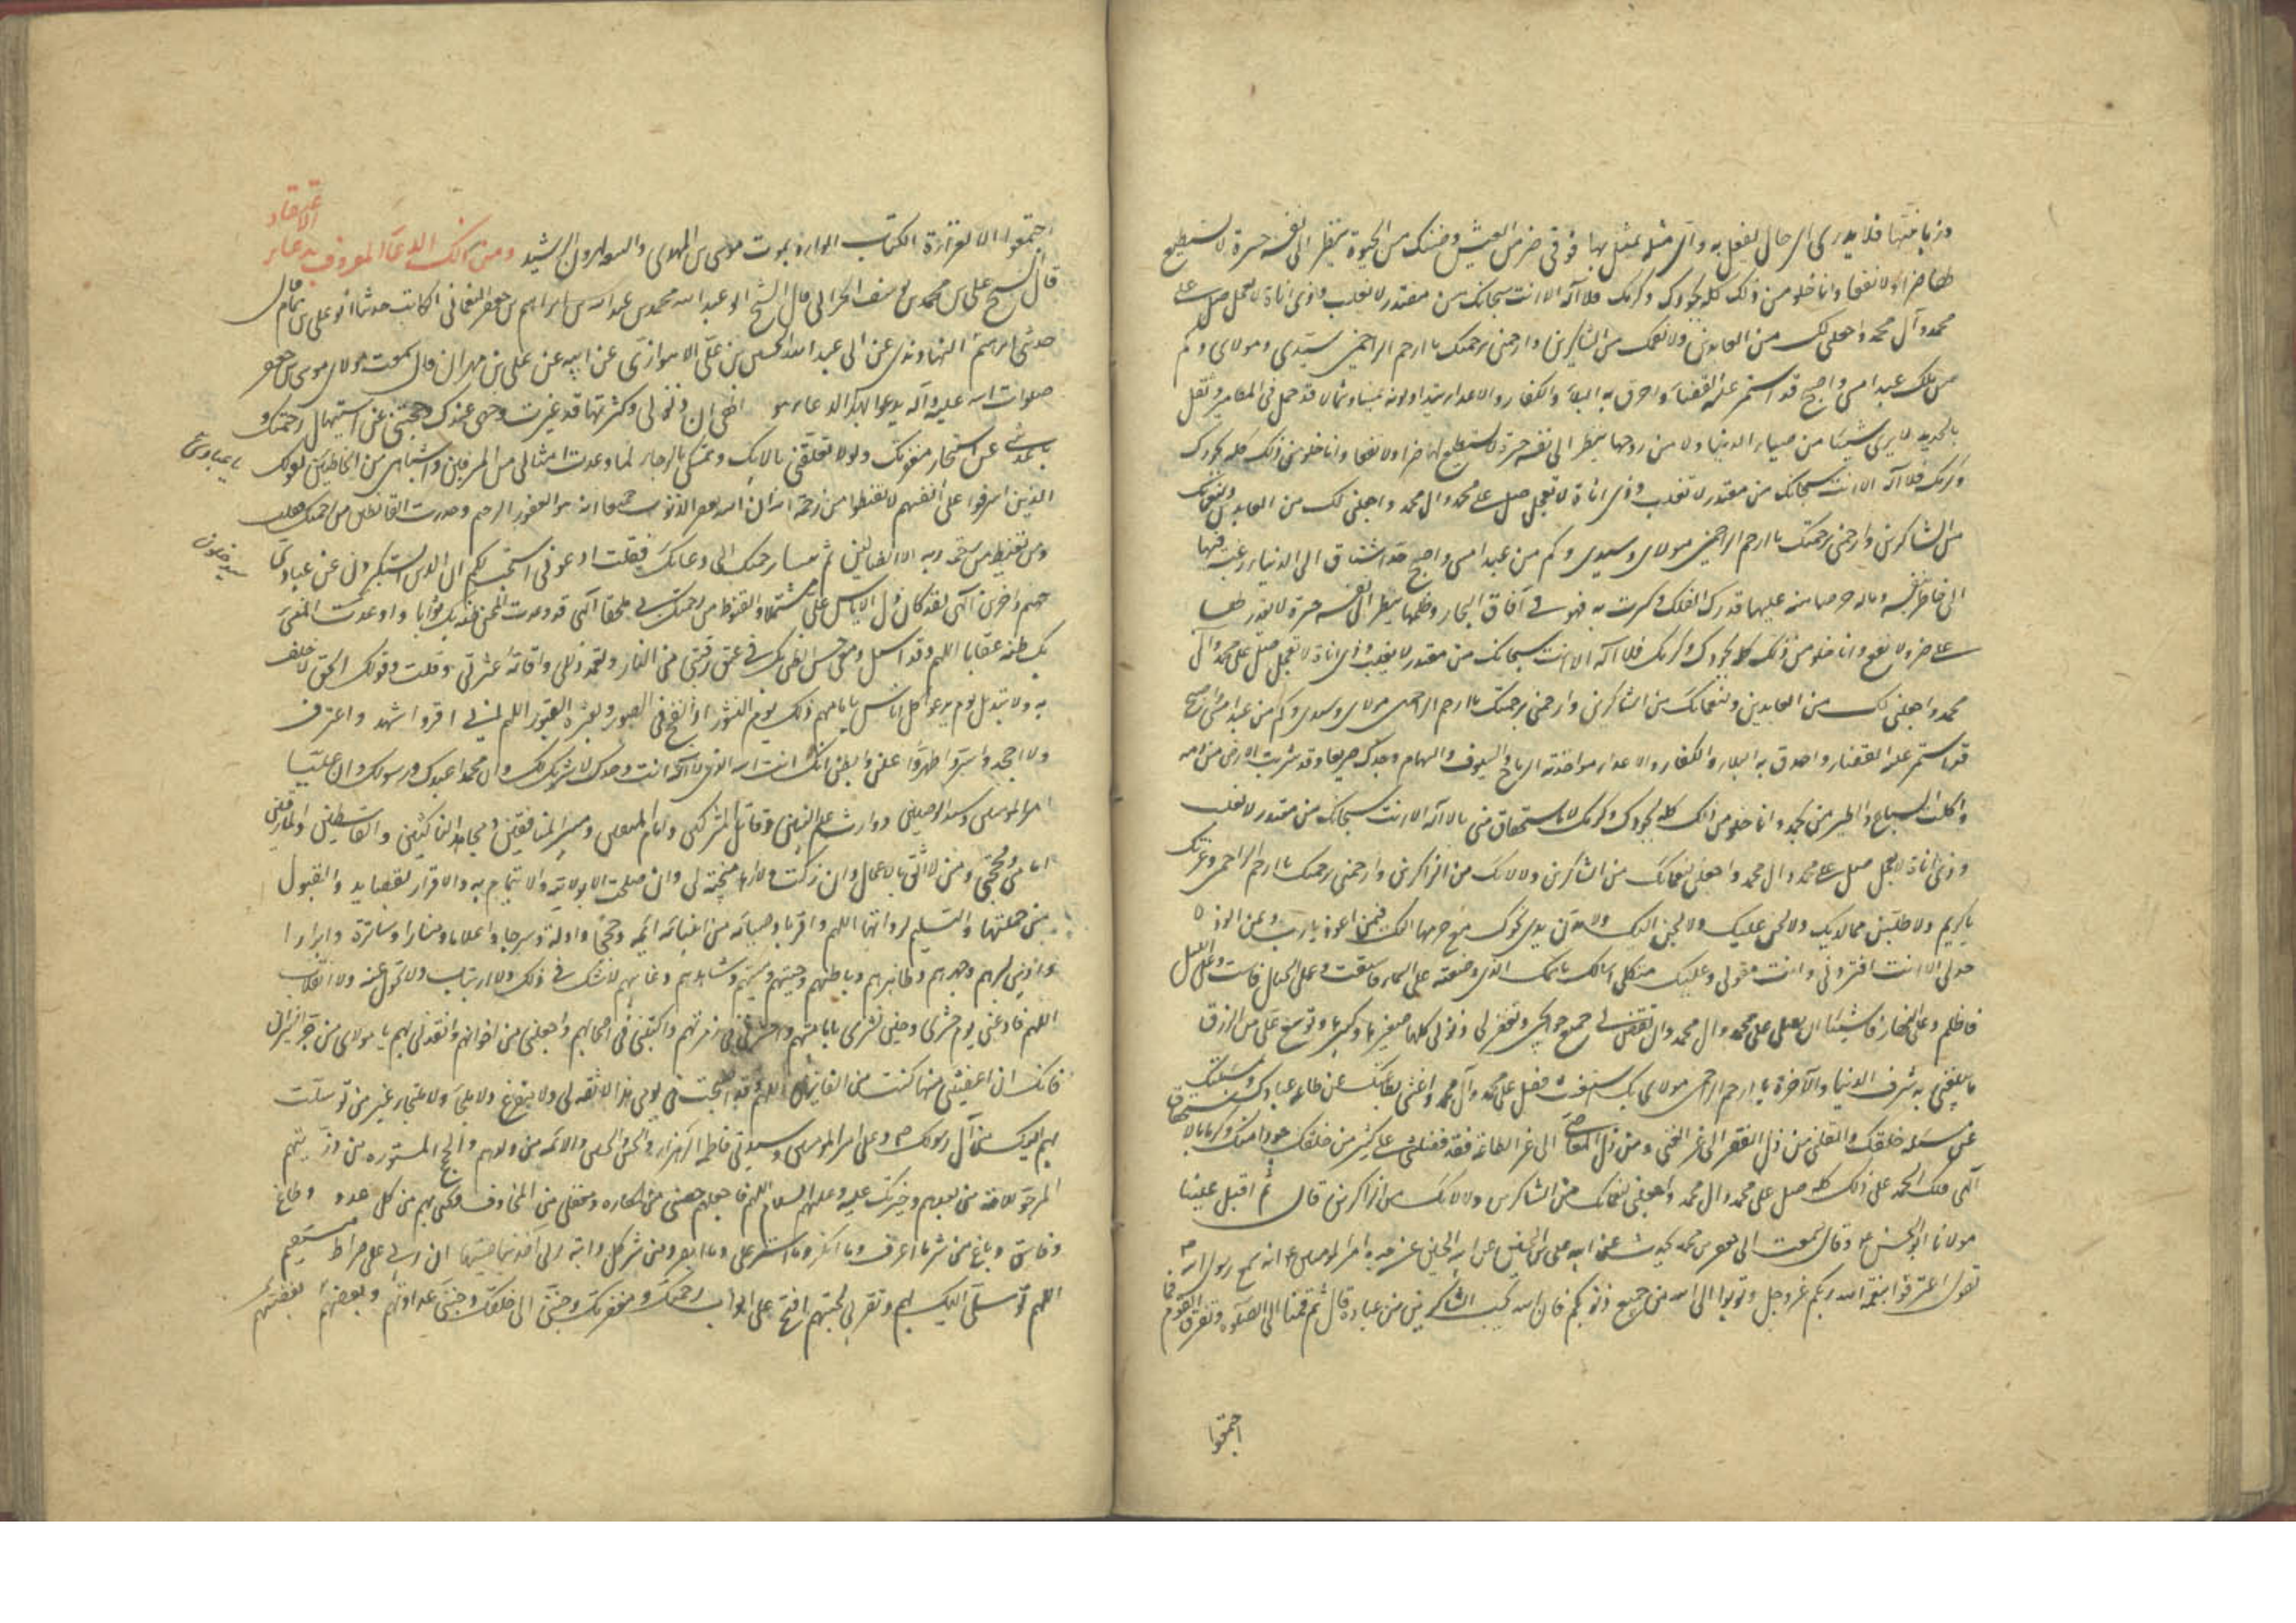 وزبانيتها فلا يدري اي حال يفعل به واي مثلة يمثل بها فهو في ضر من العيش وضنك من الحيوة ينظر الى نفسه حسرة لا يستطيع
لها ضرا ولا نفعا وانا خلو من ذلك كله بجودك وكرمك فلا اله الا انت سبحانك من مقتدر لا يغلب وذي اناة لا يعجل صل على
محمد وآل محمد واجعلني لك من العابدين ولانعمك من الشاكرين وارحمني برحمتك يا ارحم الراحمين سيدي ومولاي وكم
من عبد امسى واصبح قد استمر عليه القضاء واحدق به البلاء والكفار والاعداء يتداولونه يمينا وشمالا قد حمل في المطامير وثقل
بالحديد لا يرى شيئا من ضياء الدنيا ولا من روحها ينظر الى نفسه حسرة لا يستطيع لها ضرا ولا نفعا وانا خلو من ذلك كله بجودك
وكرمك فلا اله الا انت سبحانك من مقتدر لا تغلب وذي اناة لا تعجل صل على محمد وال محمد واجعلني لك من العابدين ولنعمك
من الشاكرين وارحمني برحمتك يا ارحم الراحمين مولاي وسيدي وكم من عبد امسى واصبح قد اشتاق الى الدنيا رغبة فيها
الى خاطر بنفسه وماله حرصا منه عليها قد ركب الفلك وكسرت به فهو في آفاق البحار وظلمها ينظر الى نفسه حسرة لا يقدر لها
على ضر ولا نفع وانا خلو من ذلك كله بجودك وكرمك فلا اله الا انت سبحانك من مقتدر لا يغلب وذي اناة لا تعجل صل على محمد وآل
محمد واجعلني لك من العابدين ولنعمائك من الشاكرين وارحمني برحمتك يا ارحم الراحمين مولاي وسيدي وكم من عبد امسى واصبح
قد استمر عليه القضاء واحدق به البلاء والكفار والاعداء واخذته الرماح والسيوف والسهام وجدل صريعا وقد شربت الارض من دمه
واكلت السباع والطير من لحمه وانا خلو من ذلك كله بجودك وكرمك لا باستحقاق مني يا لا اله الا انت سبحانك من مقتدر لا يغلب
وذي اناة لا يعجل صل على محمد وال محمد واجعلني لنعمائك من الشاكرين ولالائك من الذاكرين وارحمني برحمتك يا ارحم الراحمين وعزتك
يا كريم ولاطلبن مما لديك ولالحن عليك ولالجن اليك ولامدن يدي نحوك مع جرمها اليك فبمن اعوذ يا رب وبمن الوذ
لا احد لي الا انت افتردني وانت معولي وعليك متكلي اسالك باسمك الذي وضعته على السماء فاستقلت وعلى الجبال فرست وعلى الليل
فاظلم وعلى النهار فاستنار ان تصلي على محمد وال محمد وان تقضي لي جميع حوائجي وتغفر لي ذنوبي كلها صغيرها وكبيرها وتوسع علي من الرزق
ما تبلغني به شرف الدنيا والآخرة يا ارحم الراحمين مولاي بك استغثت فصل على محمد وآل محمد واغنني بطاعتك عن طاعة عبادك وبمسئلتك
عن مسئلة خلقك وانقلني من ذل الفقر الى عز الغنى ومن ذل المعاصي الى عز الطاعة فقد فضلتني على كثير من خلقك جودا منك وكرما لا باستحقاق
الهي فلك الحمد على ذلك كله صل على محمد وال محمد واجعلني لنعمائك من الشاكرين ولالائك من الذاكرين قال ثم اقبل علينا
مولانا ابو الحسن وقال سمعت ابي جعفر بن محمد يحدث عن ابيه علي بن الحسين عن ابيه الحسين عن جده امير المؤمنين انه سمع رسول الله
يقول اعترفوا بنعمة الله ربكم عز وجل وتوبوا الى الله من جميع ذنوبكم فان الله يحب الشاكرين من عباده قال ثم قمنا الى الصلوة وتفرق القوم فما
اجتمعوا
اجتمعوا الا لقراءة الكتاب الوارد بموت موسى بن المهدي والبيعة لهرون الرشيد ومن ذلك الدعاء المعروف بدعاء
الاعتقاد
قال الشيخ علي بن محمد بن يوسف الحراني قال الشيخ ابو عبد الله محمد بن عبد الله بن ابراهيم بن جعفر النعماني الكاتب حدثنا ابو علي بن همام قال
حدثني ابراهيم النهاوندي عن ابي عبد الله الحسين بن علي الاهوازي عن ابيه عن علي بن مهران قال سمعت مولاي موسى بن جعفر
صلوات الله عليه وآله يدعو بهذا الدعاء وهو الهي ان ذنوبي وكثرتها قد غيرت وجهي عندك وحجبتني عن استيهال رحمتك و
باعدتني عن استنجاز مغفرتك ولولا تعلقي بالائك وتمسكي بالرجاء لما وعدت امثالي من المسرفين واشباهي من الخاطئين بقولك يا عبادي
الذين اسرفوا على انفسهم لا تقنطوا من رحمة الله ان الله يغفر الذنوب جميعا انه هو الغفور الرحيم وحذرت القانطين من رحمتك فقلت
ومن يقنط من رحمة ربه الا الضالون ثم ندبتنا برحمتك الى دعائك فقلت ادعوني استجب لكم ان الذين يستكبرون عن عبادتي سيدخلون
جهنم داخرين الهي لقد كان ذل الاياس علي مشتملا والقنوط من رحمتك بي ملتحفا الهي قد وعدت المحسن ظنه بك ثوابا واوعدت المسيء
بك ظنه عقابا اللهم وقد اسبل دمعي حسن الظن بك في عتق رقبتي من النار وتغمد زللي واقالة عثرتي وقلت وقولك الحق لا خلف
له ولا تبديل يوم يدعو كل اناس بامامهم ذلك يوم النشور اذا نفخ في الصور وبعثر ما في القبور اللهم اني اقر واشهد واعترف
ولا اجحد واسر واظهر واعلن وابطن بانك انت الله الذي لا اله الا انت وحدك لا شريك لك وان محمدا عبدك ورسولك وان عليا
امير المؤمنين وسيد الوصيين ووارث علم النبيين وقاتل المشركين وامام المتقين ومبير المنافقين ومجاهد الناكثين والقاسطين والمارقين
امامي ومحجتي ومن لا اثق بالاعمال وان زكت ولا اراها منجية لي وان صلحت الا بولايته والايتمام به والاقرار بفضائله والقبول
من حملتها والتسليم لرواتها اللهم واقر باوصيائه من ابنائه ائمة وحججا وادلة وسرجا واعلاما ومنارا وسادة وابرارا
وادين بسرهم وجهرهم وظاهرهم وباطنهم وحيهم وميتهم وشاهدهم وغائبهم لا شك في ذلك ولا ارتياب ولا تحول عنه ولا انقلاب
اللهم فادعني يوم حشري وحين نشري بامامتهم واحشرني في زمرتهم واكتبني في اصحابهم واجعلني من اخوانهم وانقذني بهم يا مولاي من حر النيران
فانك ان اعفيتني منها كنت من الفائزين اللهم وقد اصبحت في يومي هذا لا ثقة لي ولا مفزع ولا ملجأ ولا ملتجأ غير من توسلت
بهم اليك من آل رسولك وعلى امير المؤمنين وسيدتي فاطمة الزهراء والحسن والحسين والائمة من ولدهم والحجة المستورة من ذريتهم
المرجو للامة من بعدهم وخيرتك عليه وعليهم السلام اللهم فاجعلهم حصني من المكاره ومعقلي من المخاوف ونجني بهم من كل عدو وطاغ
وفاسق وباغ من شر ما اعرف وما انكر وما استتر علي وما ابصر ومن شر كل دابة ربي آخذ بناصيتها ان ربي على صراط مستقيم
اللهم توسلي اليك بهم وتقربي بمحبتهم افتح علي ابواب رحمتك ومغفرتك وحببني الى خلقك وجنبني عداوتهم وبغضهم